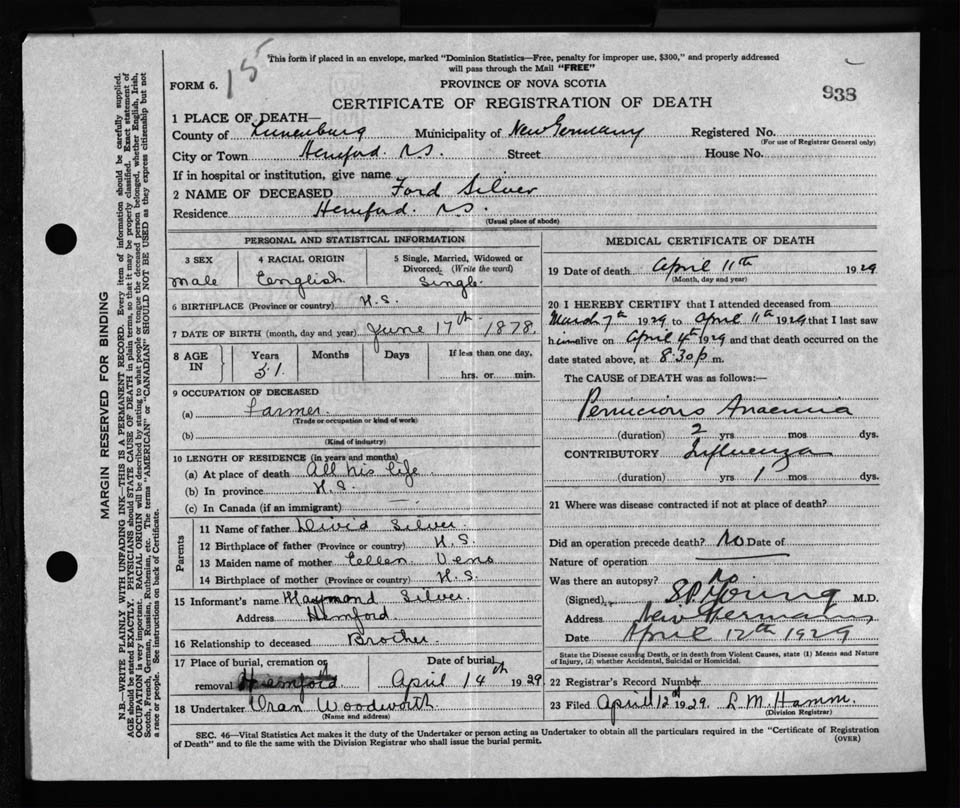 15
This form if placed in an envelope, marked "Dominion Statistics—Free, penalty for improper use, $300," and properly addressed
will pass through the Mail "FREE"
FORM 6.
PROVINCE OF NOVA SCOTIA
938
CERTIFICATE OF REGISTRATION OF DEATH
1 PLACE OF DEATH—
County of Lunenburg Municipality of New Germany Registered No.
(For use of Registrar General only)
City or Town Hemford. N.S. Street House No.
If in hospital or institution, give name
2 NAME OF DECEASED Ford Silver
Residence Hemford. N.S.
(Usual place of abode)
PERSONAL AND STATISTICAL INFORMATION
3 SEX
male
4 RACIAL ORIGIN
English
5 Single, Married, Widowed or
Divorced. (Write the word)
Single.
6 BIRTHPLACE (Province or country) N.S.
7 DATE OF BIRTH (month, day and year) June 17th 1878.
8 AGE
IN
Years
51.
Months
Days
If less than one day,
hrs. or min.
9 OCCUPATION OF DECEASED
(a) Farmer.
(Trade or occupation or kind of work)
(b)
(Kind of industry)
10 LENGTH OF RESIDENCE (in years and months)
(a) At place of death All his life
(b) In province N.S.
(c) In Canada (if an immigrant) —.
Parents
11 Name of father David Silver.
12 Birthplace of father (Province or country) N.S.
13 Maiden name of mother Ellen
14 Birthplace of mother (Province or country) N.S.
15 Informant's name Raymond Silver.
Address Hemford.
16 Relationship to deceased Brother.
17 Place of burial, cremation or
removal Hemford.
Date of burial
April 14th 1929
18 Undertaker Oran Woodworth
(Name and address)
MEDICAL CERTIFICATE OF DEATH
19 Date of death April 11th 1929
(Month, day and year)
20 I HEREBY CERTIFY that I attended deceased from
March 7th 1929 to April 11th 1929 that I last saw
him alive on April 4th 1929 and that death occurred on the
date stated above, at 8.30 p m.
The CAUSE of DEATH was as follows:—
Pernicious Anaemia
(duration) 2 yrs mos dys.
CONTRIBUTORY Influenza
(duration) yrs 1 mos dys.
21 Where was disease contracted if not at place of death?
Did an operation precede death? No Date of
Nature of operation
Was there an autopsy? no
(Signed) S.P. Young M.D.
Address New Germany
Date April 12th 1929
State the Disease causing Death, or in death from Violent Causes, state (1) Means and Nature
of Injury, (2) whether Accidental, Suicidal or Homicidal.
22 Registrar's Record Number
23 Filed April 12d 1929. L. M. Hamm.
(Division Registrar)
SEC. 46—Vital Statistics Act makes it the duty of the Undertaker or person acting as Undertaker to obtain all the particulars required in the "Certificate of Registration
of Death" and to file the same with the Division Registrar who shall issue the burial permit.
(OVER)
MARGIN RESERVED FOR BINDING
N.B.—WRITE PLAINLY WITH UNFADING INK—THIS IS A PERMANENT RECORD. Every item of information should be carefully supplied.
AGE should be stated EXACTLY. PHYSICIANS should STATE CAUSE OF DEATH in plain terms, so that it may be properly classified. Exact statement of
OCCUPATION is very important. RACIAL ORIGIN will be described by stating to what people or tongue the deceased person belonged, whether English, Irish,
Scotch, French, German, Russian, Ruthenian, etc. The terms "AMERICAN" or "CANADIAN" SHOULD NOT BE USED as they express citizenship but not
a race or people. See instructions on back of Certificate.